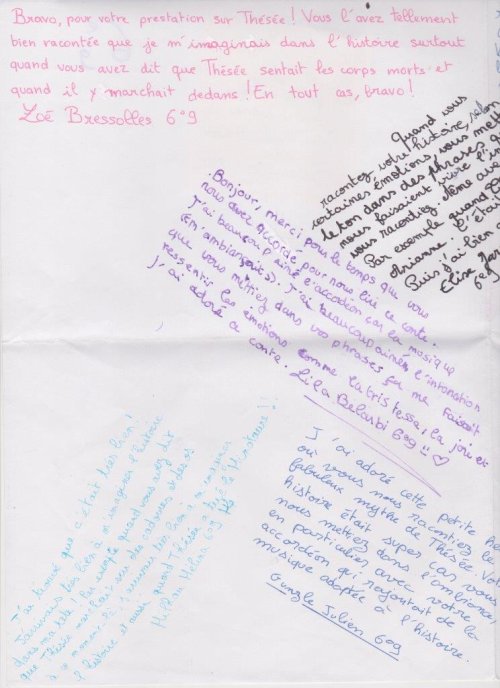 Bravo, pour votre prestation sur Thésée! Vous l'avez tellement
bien racontée que je m'imaginais dans l'histoire surtout
quand vous avez dit que Thésée sentait les corps morts et
quand il y marchait dedans! En tout cas, bravo!
Zoé Bressolles 6°9
Quand vous
racontez votre histoire,
certaines émotions, vous
le ton dans des phrases,
nous faisaient vivre
vous racontiez. Même
Par exemple quand
Arianne. l'était
Puis j'ai bien
Elisa
Bonjour, merci pour le temps que vous
nous avez accordé pour nous lire ce conte.
J'ai beaucoup aimé l'accodéon car la musique
J'ai beaucoup aimé l'intonation
que vous mettiez dans vos phrases ça me faisait
ressentir les émotions comme la tristesse, la joie etc
j'ai adoré ce conte. Lila Belarbi 6e9 !! ♡
J'ai trouvé que c'était très bien!
J'arrivais très bien à m'imaginer l'histoire
dans ma tête! Par exemple quand vous avez dit
que Thésée marchait sur des cadavres et des os
à ce moment là j'arrivais très bien à m'imaginer
l'histoire et aussi quand Thésée a tué le Minotaure!!
Molina 6e9
J'ai adoré cette petite
où vous nous racontiez le
fabuleux mythe de Thésée. Votre
histoire était super car vous
nous mettiez dans l'ambiance
en particulier avec votre
accordéon qui rajoutait de la
musique adaptée à l'histoire.
Julien 6e9